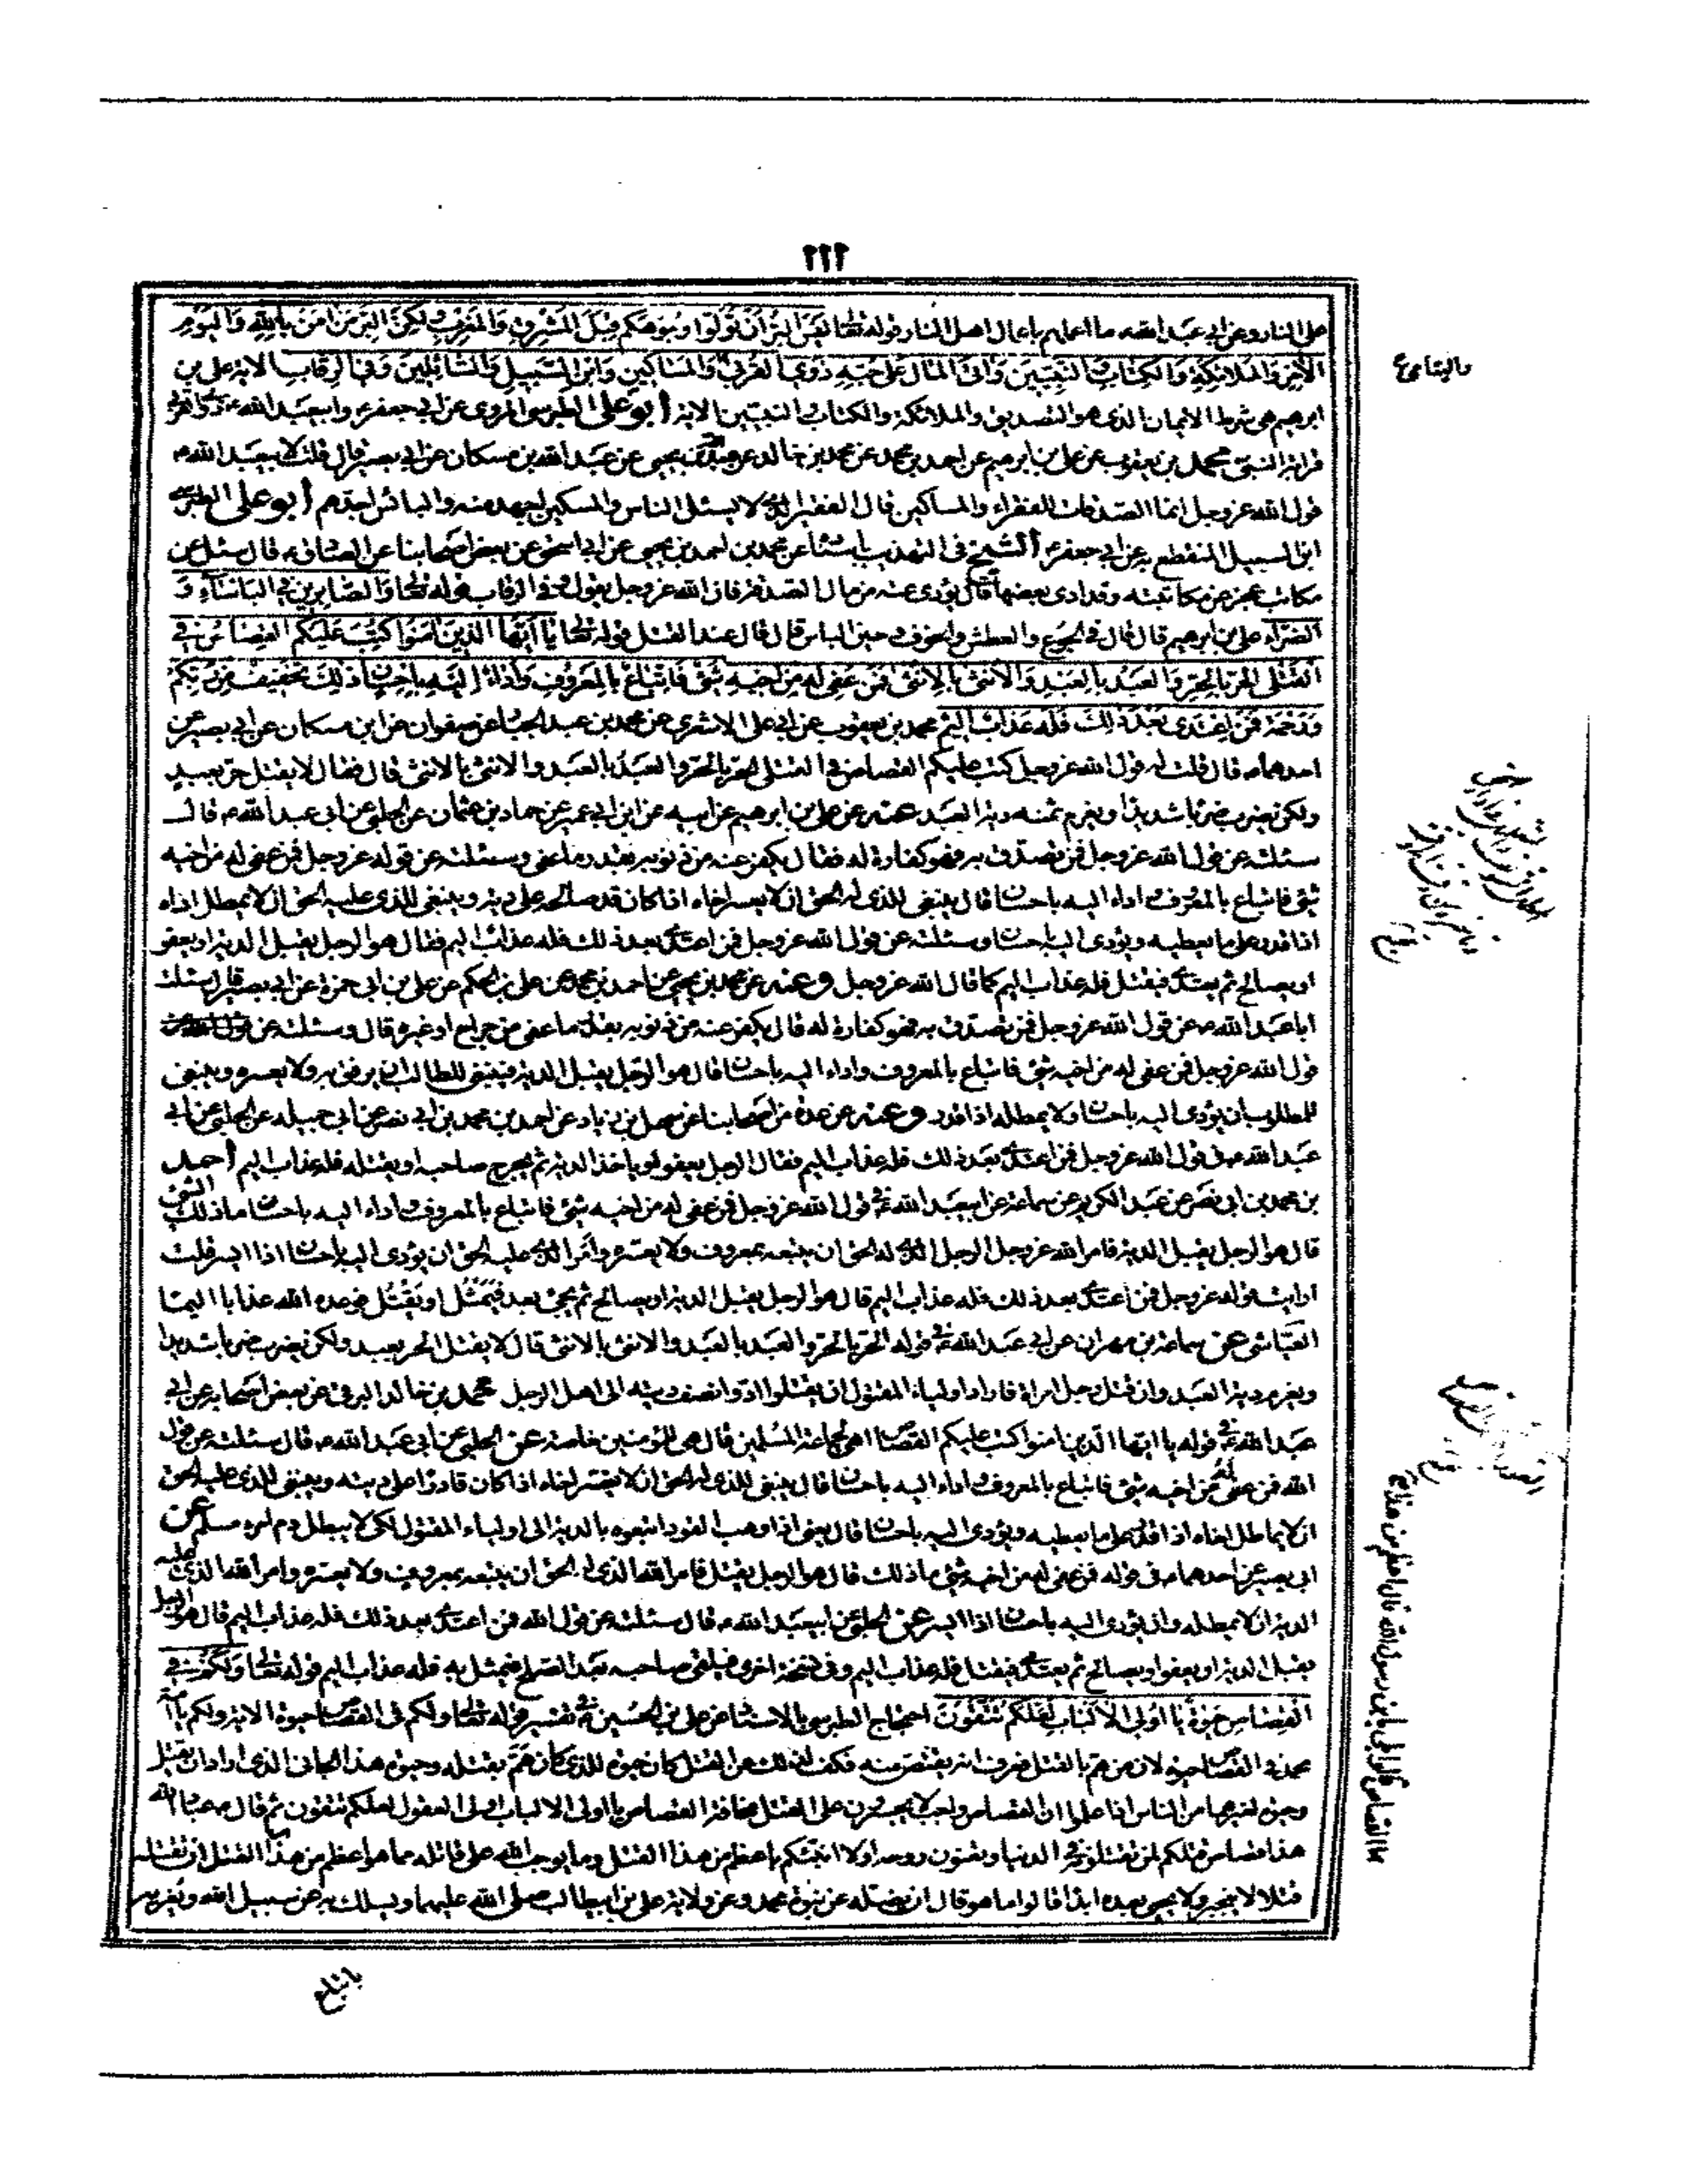 ١١٢
على النار وعن ابي عبد الله ما اعملهم باعمال اهل النار قوله تعالى ليس البر ان تولوا وجوهكم قبل المشرق والمغرب ولكن البر من امن بالله واليوم
الاخر والملائكة والكتاب والنبيين واتى المال على حبه ذوي القربى والمساكين وابن السبيل والسائلين وفي الرقاب الاية علي بن
والیتامی
ابرهيم هي شرط الايمان الذي هو التصديق والملائكة والكتاب والنبيين الاية أبو علي الطبرسي المروي عن ابي جعفر وابيعبد الله
قرابة النبي محمد بن يعقوب عن علي بن ابرهيم عن احمد بن محمد عن محمد بن خالد عن عبد الله بن يحيى عن عبد الله بن مسكان عن ابي بصير قال قلت لابيعبد الله
قول الله عز وجل انما الصدقات للفقراء والمساكين قال الفقير الذي لا يسئل الناس والمسكين اجهد منه والبائس اجهدهم أبو علي الطبرسي
ابن السبيل المنقطع به عن ابي جعفر الشيخ في التهذيب باسناده عن محمد بن احمد بن يحيى عن ابي اسحق عن بعض اصحابنا عن الصادق قال سئل عن
مكاتب عجز عن مكاتبته وقد ادى بعضها قال يؤدى عنه من مال الصدقة فان الله عز وجل يقول وفي الرقاب قوله تعالى والصابرين في الباساء و
الضراء علي بن ابرهيم قال قال في الجوع والعطش والخوف وحين الباس قال قال عند القتل قوله تعالى يا ايها الذين امنوا كتب عليكم القصاص في
القتلى الحر بالحر والعبد بالعبد والانثى بالانثى فمن عفي له من اخيه شئ فاتباع بالمعروف واداء اليه باحسان ذلك تخفيف من ربكم
ورحمة فمن اعتدى بعد ذلك فله عذاب اليم محمد بن يعقوب عن ابي علي الاشعري عن محمد بن عبد الجبار عن صفوان عن ابن مسكان عن ابي بصير عن
احدهما قال قلت له قول الله عز وجل كتب عليكم القصاص في القتلى الحر بالحر والعبد بالعبد والانثى بالانثى قال فقال لا يقتل حر بعبد
ولكن يضرب ضربا شديدا ويغرم ثمنه دية العبد عنه عن علي بن ابرهيم عن ابيه عن ابن ابي عمير عن حماد بن عثمان عن الحلبي عن ابي عبد الله قال
سئلته عن قول الله عز وجل فمن تصدق به فهو كفارة له فقال يكفر عنه من ذنوبه بقدر ما عفى وسئلته عن قوله عز وجل فمن عفي له من اخيه
شئ فاتباع بالمعروف واداء اليه باحسان قال ينبغي للذي له الحق ان لا يعسر اخاه اذا كان قد صالحه على دية وينبغي للذي عليه الحق ان لا يمطل اداه
اذا قدر على ما يعطيه ويؤدى اليه باحسان وسئلته عن قول الله عز وجل فمن اعتدى بعد ذلك فله عذاب اليم فقال هو الرجل يقبل الدية او يعفو
او يصالح ثم يعتدى فيقتل فله عذاب اليم كما قال الله عز وجل وعنه عن محمد بن يحيى عن احمد بن محمد عن علي بن الحكم عن علي بن ابي حمزة عن ابي بصير قال سئلت
ابا عبد الله عن قول الله عز وجل فمن تصدق به فهو كفارة له قال يكفر عنه من ذنوبه بقدر ما عفى من جراح او غيره قال وسئلته عن
قول الله عز وجل فمن عفي له من اخيه شئ فاتباع بالمعروف واداء اليه باحسان قال هو الرجل يقبل الدية فينبغي للطالب ان يرفق به ولا يعسره وينبغي
للمطلوب ان يؤدى اليه باحسان ولا يمطله اذا قدر وعنه عن عدة من اصحابنا عن سهل بن زياد عن احمد بن محمد بن ابي نصر عن ابي جميله عن الحلبي عن ابي
عبد الله في قول الله عز وجل فمن اعتدى بعد ذلك فله عذاب اليم فقال الرجل يعفو او ياخذ الدية ثم يجرح صاحبه او يقتله فله عذاب اليم أحمد
بن محمد بن ابي نصر عن عبد الكريم عن سماعة عن ابيعبد الله في قول الله عز وجل فمن عفي له من اخيه شئ فاتباع بالمعروف واداء اليه باحسان ما ذلك الشئ
قال هو الرجل يقبل الدية فامر الله عز وجل الرجل الذي له الحق ان يتبعه بمعروف ولا يعسره وامر الذي عليه الحق ان يؤدى اليه باحسان اذا ايسر قلت
ارايت قوله عز وجل فمن اعتدى بعد ذلك فله عذاب اليم قال هو الرجل يقبل الدية او يصالح ثم يجئ بعد فيمثل او يقتل فوعده الله عذابا اليما
العياشي عن سماعة بن مهران عن ابي عبد الله في قوله الحر بالحر والعبد بالعبد والانثى بالانثى قال لا يقتل الحر بعبد ولكن يضرب ضربا شديدا
ويغرم دية العبد وان قتل رجل امراة فاراد اولياء المقتول ان يقتلوا ادوا نصف ديته الى اهل الرجل محمد بن خالد البرقي عن بعض اصحابه عن ابي
عبد الله في قوله يا ايها الذين امنوا كتب عليكم القصاص اهي لجماعة المسلمين قال هي للمؤمنين خاصة عن الحلبي عن ابي عبد الله قال سئلته عن قول
الله فمن عفي له من اخيه شئ فاتباع بالمعروف واداء اليه باحسان قال ينبغي للذي له الحق ان لا يعسر اخاه اذا كان قادرا على ديته وينبغي للذي عليه الحق
ان لا يماطل اخاه اذا قدر على ما يعطيه ويؤدى اليه باحسان قال يعني اذا وهب القود اتبعوه بالدية الى اولياء المقتول لكى لا يبطل دم امرء مسلم عن
ابي بصير عن احدهما في قوله فمن عفي له من اخيه شئ ما ذلك قال هو الرجل يقبل الدية فامر الله الذي له الحق ان يتبعه بمعروف ولا يعسره وامر الله الذي عليه
الدية ان لا يمطله وان يؤدى اليه باحسان اذا ايسر عن الحلبي عن ابيعبد الله قال سئلته عن قول الله فمن اعتدى بعد ذلك فله عذاب اليم قال هو الرجل
يقبل الدية او يعفو او يصالح ثم يعتدى فيقتل فله عذاب اليم وفي نسخة اخرى فيلقى صاحبه بعد الصلح فيمثل به فله عذاب اليم قوله تعالى ولكم في
القصاص حيوة يا اولى الالباب لعلكم تتقون احتجاج الطبرسي بالاسناد عن علي بن الحسين في تفسير قوله تعالى ولكم في القصاص حيوة الاية ولكم يا امة
محمد في القصاص حيوة لان من هم بالقتل فعرف انه يقتص منه فكف لذلك عن القتل كان حيوة للذي كان هم بقتله وحيوة هذا الجاني الذي اراد ان يقتل
وحيوة لغيرهما من الناس اذا علموا ان القصاص واجب لا يجسرون على القتل مخافة القصاص يا اولى الالباب اولى العقول لعلكم تتقون ثم قال عباد الله
هذا قصاص قتلكم لمن تقتلونه في الدنيا وتفنون روحه اولا انبئكم باعظم من هذا القتل وما يوجب الله على قاتله مما هو اعظم من هذا القصاص قالوا بلى يابن رسول الله قال اعظم من هذا القتل ان تقتله
قتلا لا ينجبر ولا يحيى بعده ابدا قالوا ما هو قال ان يضله عن نبوة محمد وعن ولاية علي بن ابيطالب صلى الله عليهما ويسلك به عن سبيل الله ويغريه
باتباع